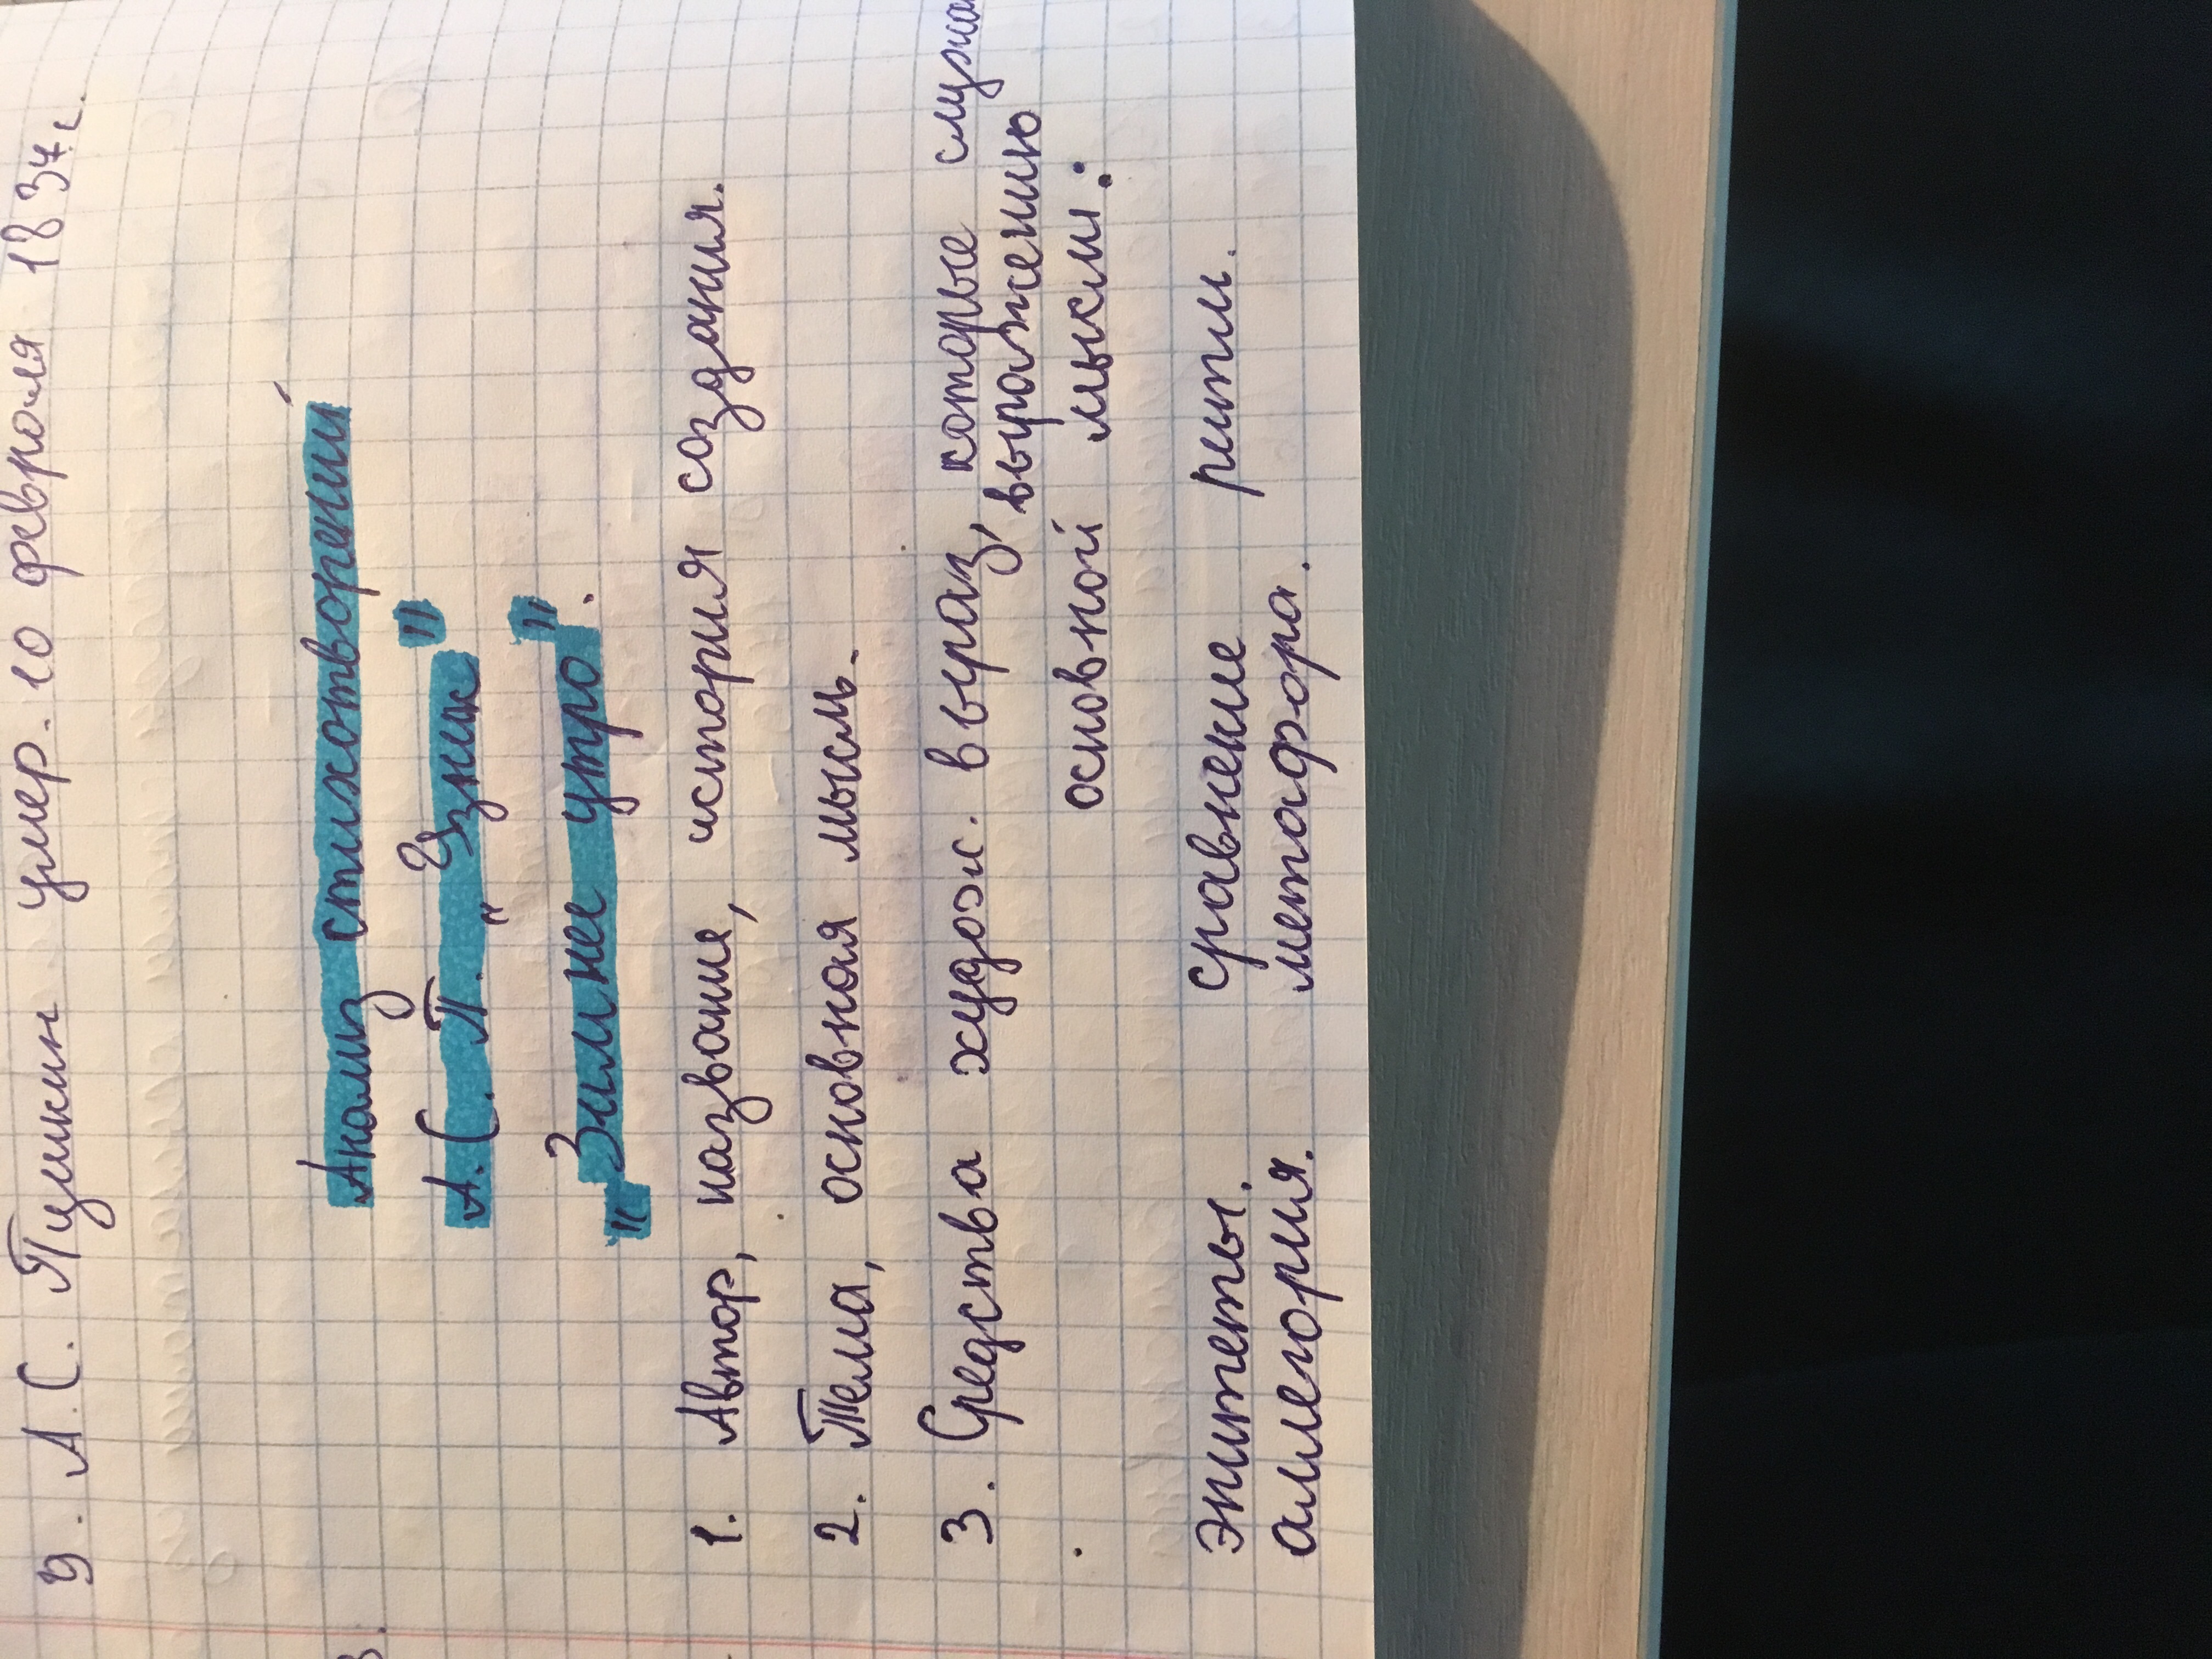 9. А.С. Пушкин умер. 10 февраля 1837г.
Анализ стихотворений
А.С. П. „Узник"
„Зимнее утро".
1. Автор, название, история создания.
2. Тема, основная мысль.
3. Средства худож. выраз, которые служа
выражению
основной мысли:
эпитеты. сравнение ритм.
аллегория. метафора.